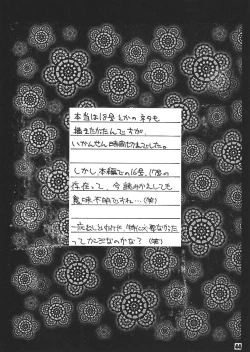 本当は18号とかのネタも
描きたかったんですが、
いかんせん時間切れでした。
しかし本編での16号、17号の
存在って、今読みかえしても
意味不明ですね…(笑)
ってかんじなのかな?(笑)